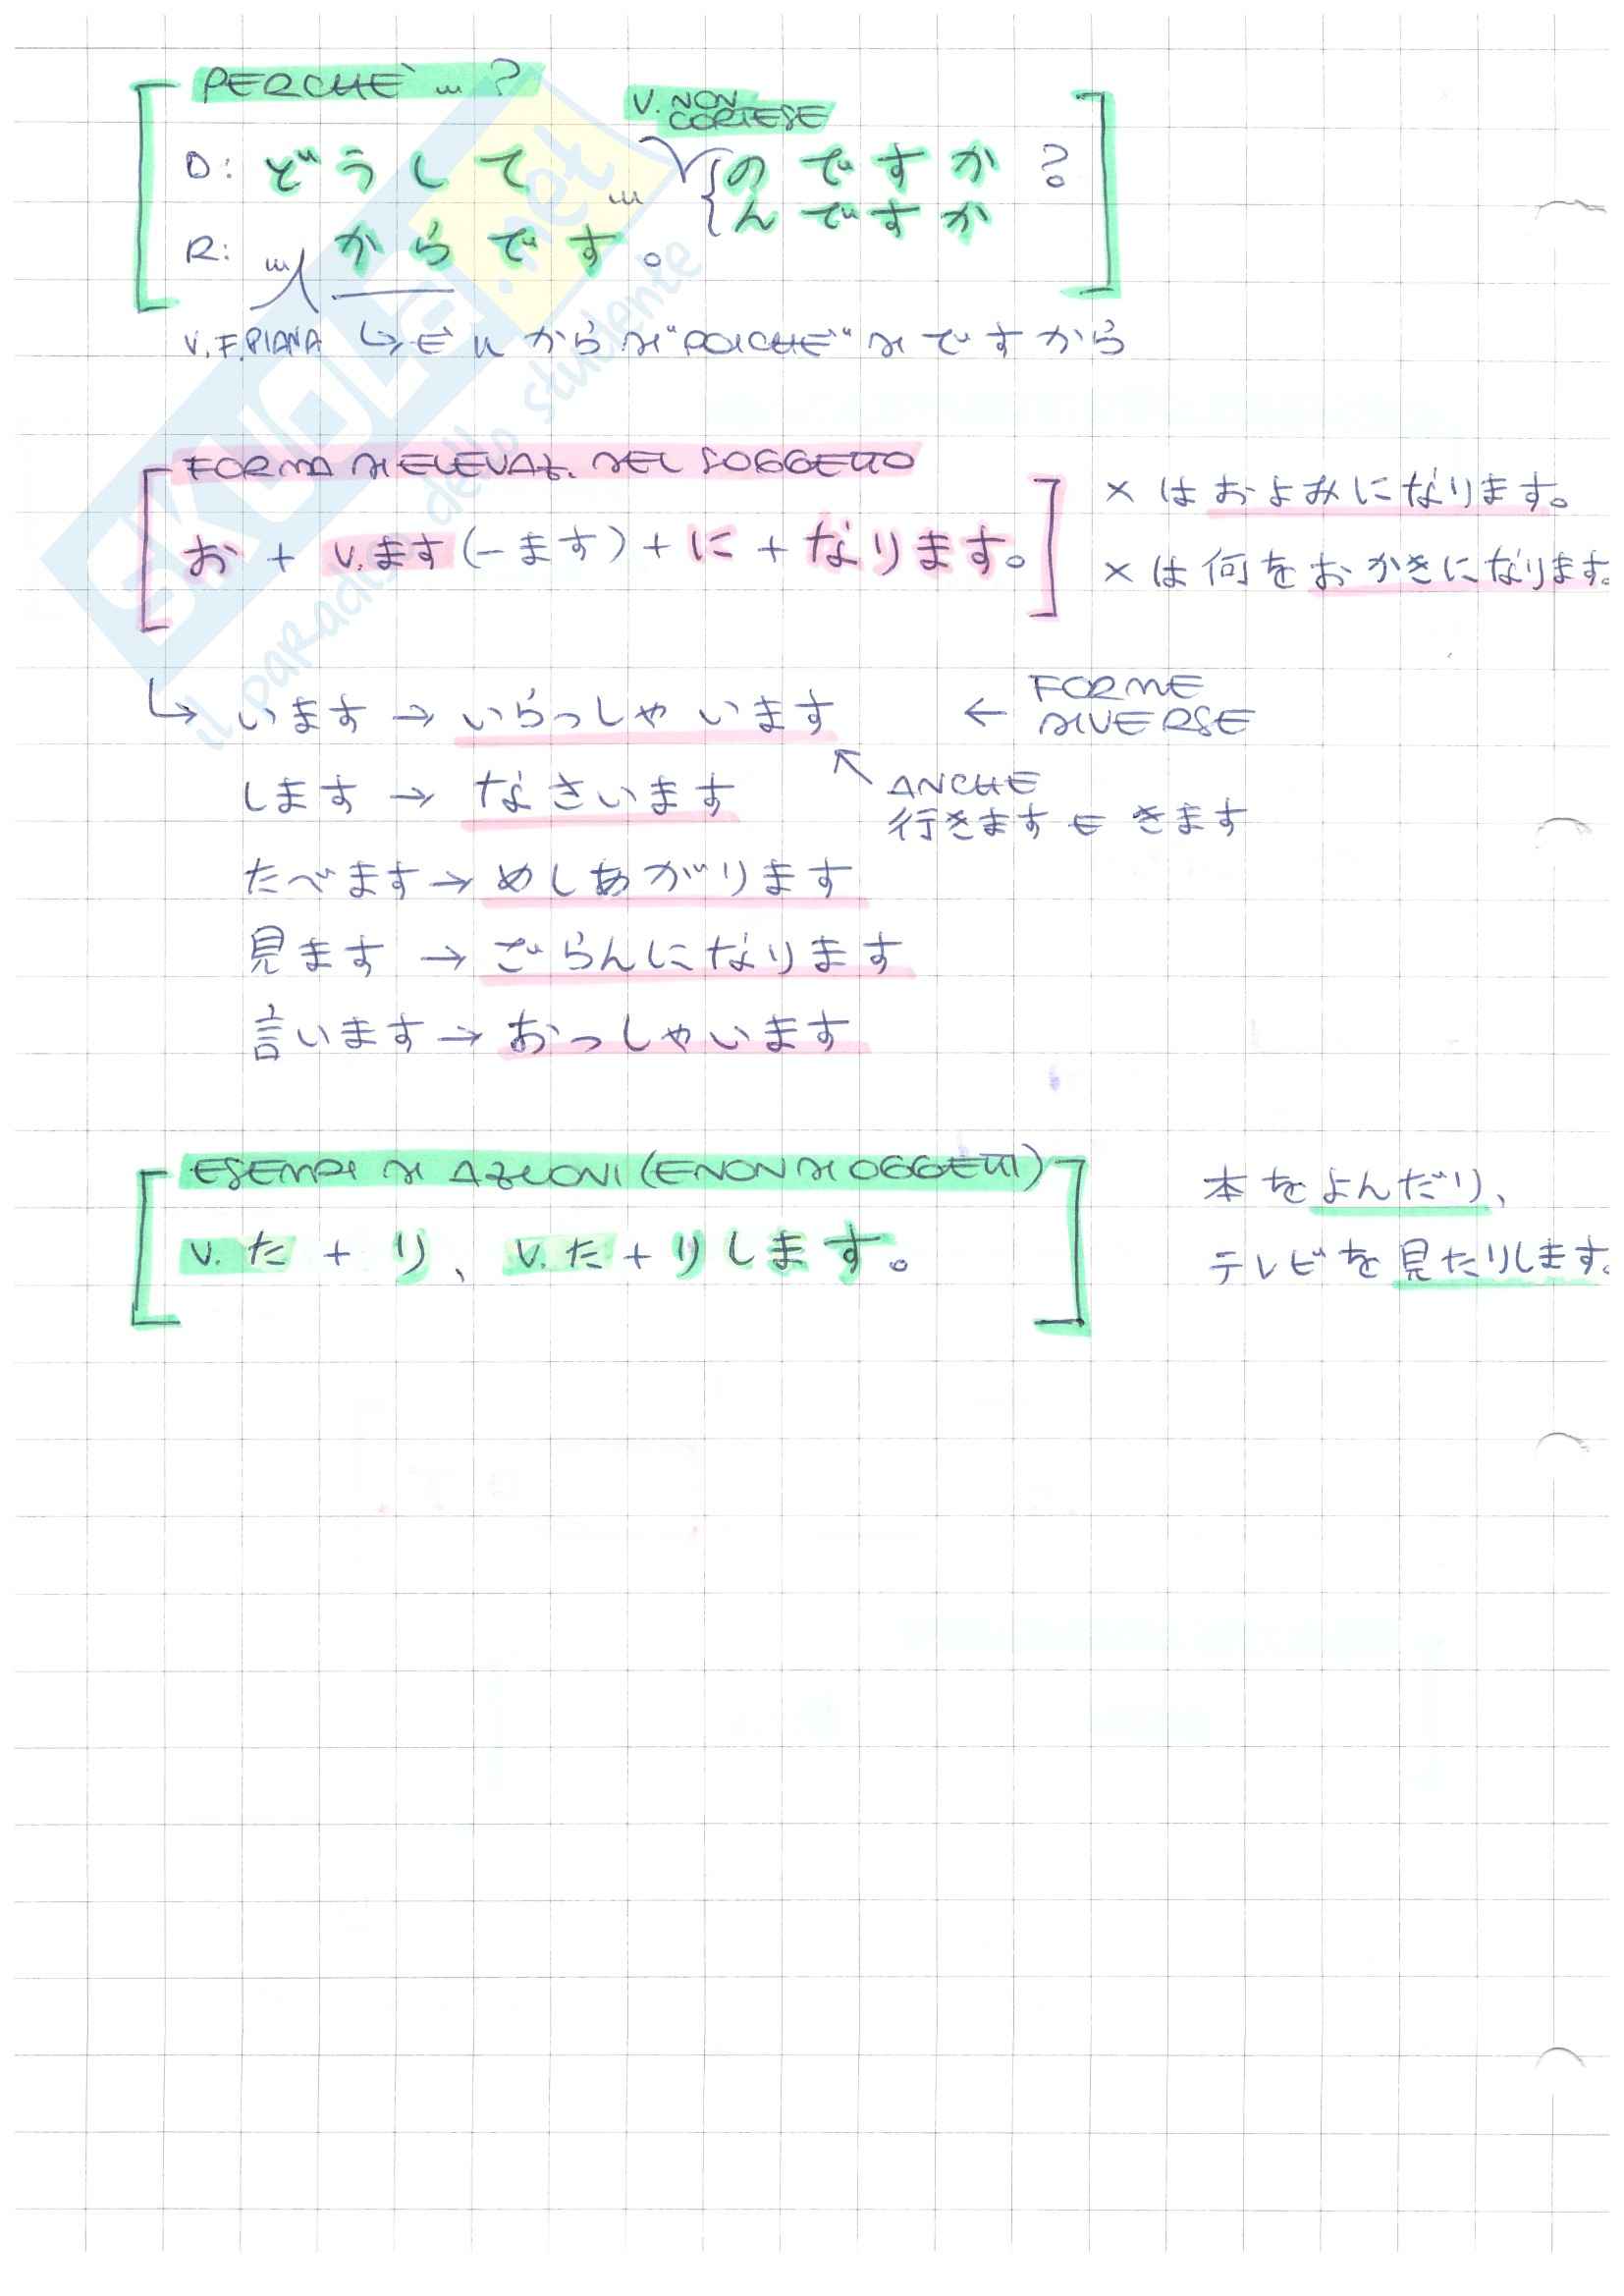 PERCHÈ ... ?
V. NON
CORTESE
D: どうして ... { のですか ?
んですか
R: ... からです。
V. F. PIANA ↳ È IL から DI "POICHÉ" DI ですから
FORMA DI ELEVAZ. DEL SOGGETTO
お + V.ます (-ます) + に + なります。
× はおよみになります。
× は何をおかきになります。
↳ います → いらっしゃいます ← FORME
DIVERSE
します → なさいます
↖ ANCHE
行きます E きます
たべます → めしあがります
見ます → ごらんになります
言います → おっしゃいます
ESEMPI DI AZIONI (E NON DI OGGETTI)
V. た + り、V. た + りします。
本をよんだり、
テレビを見たりします。
SKUOLA.net
il paradiso dello studente